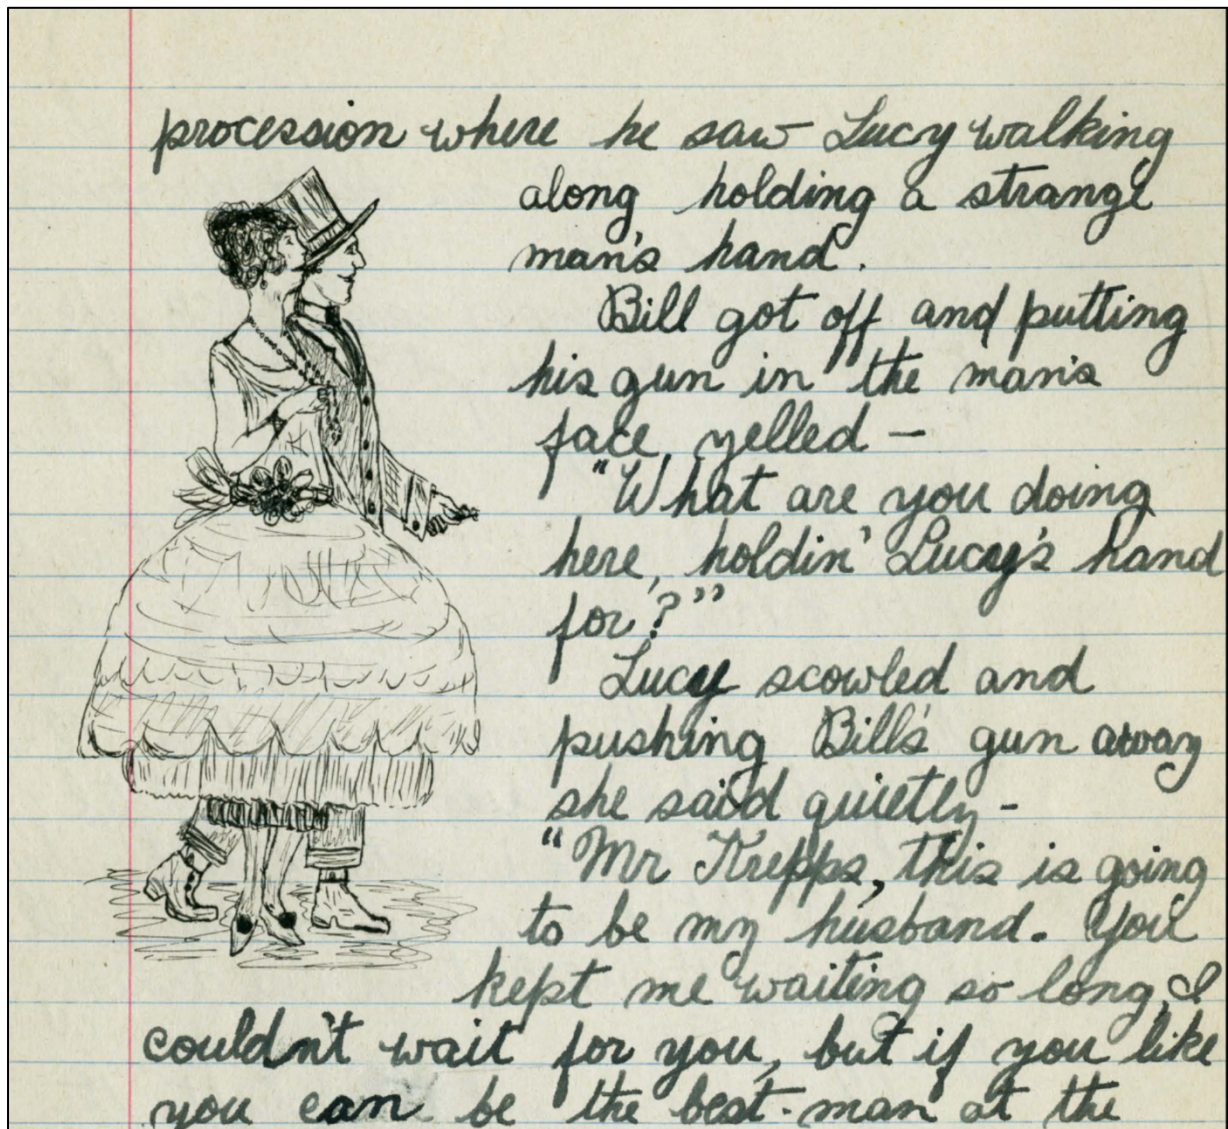 procession where he saw Lucy walking
along holding a strange
man's hand.
Bill got off and putting
his gun in the man's
face, yelled —
"What are you doing
here, holdin' Lucy's hand
for?"
Lucy scowled and
pushing Bill's gun away
she said quietly -
"Mr Krepps, this is going
to be my husband. You
kept me waiting so long, I
couldn't wait for you, but if you like
you can be the best-man at the